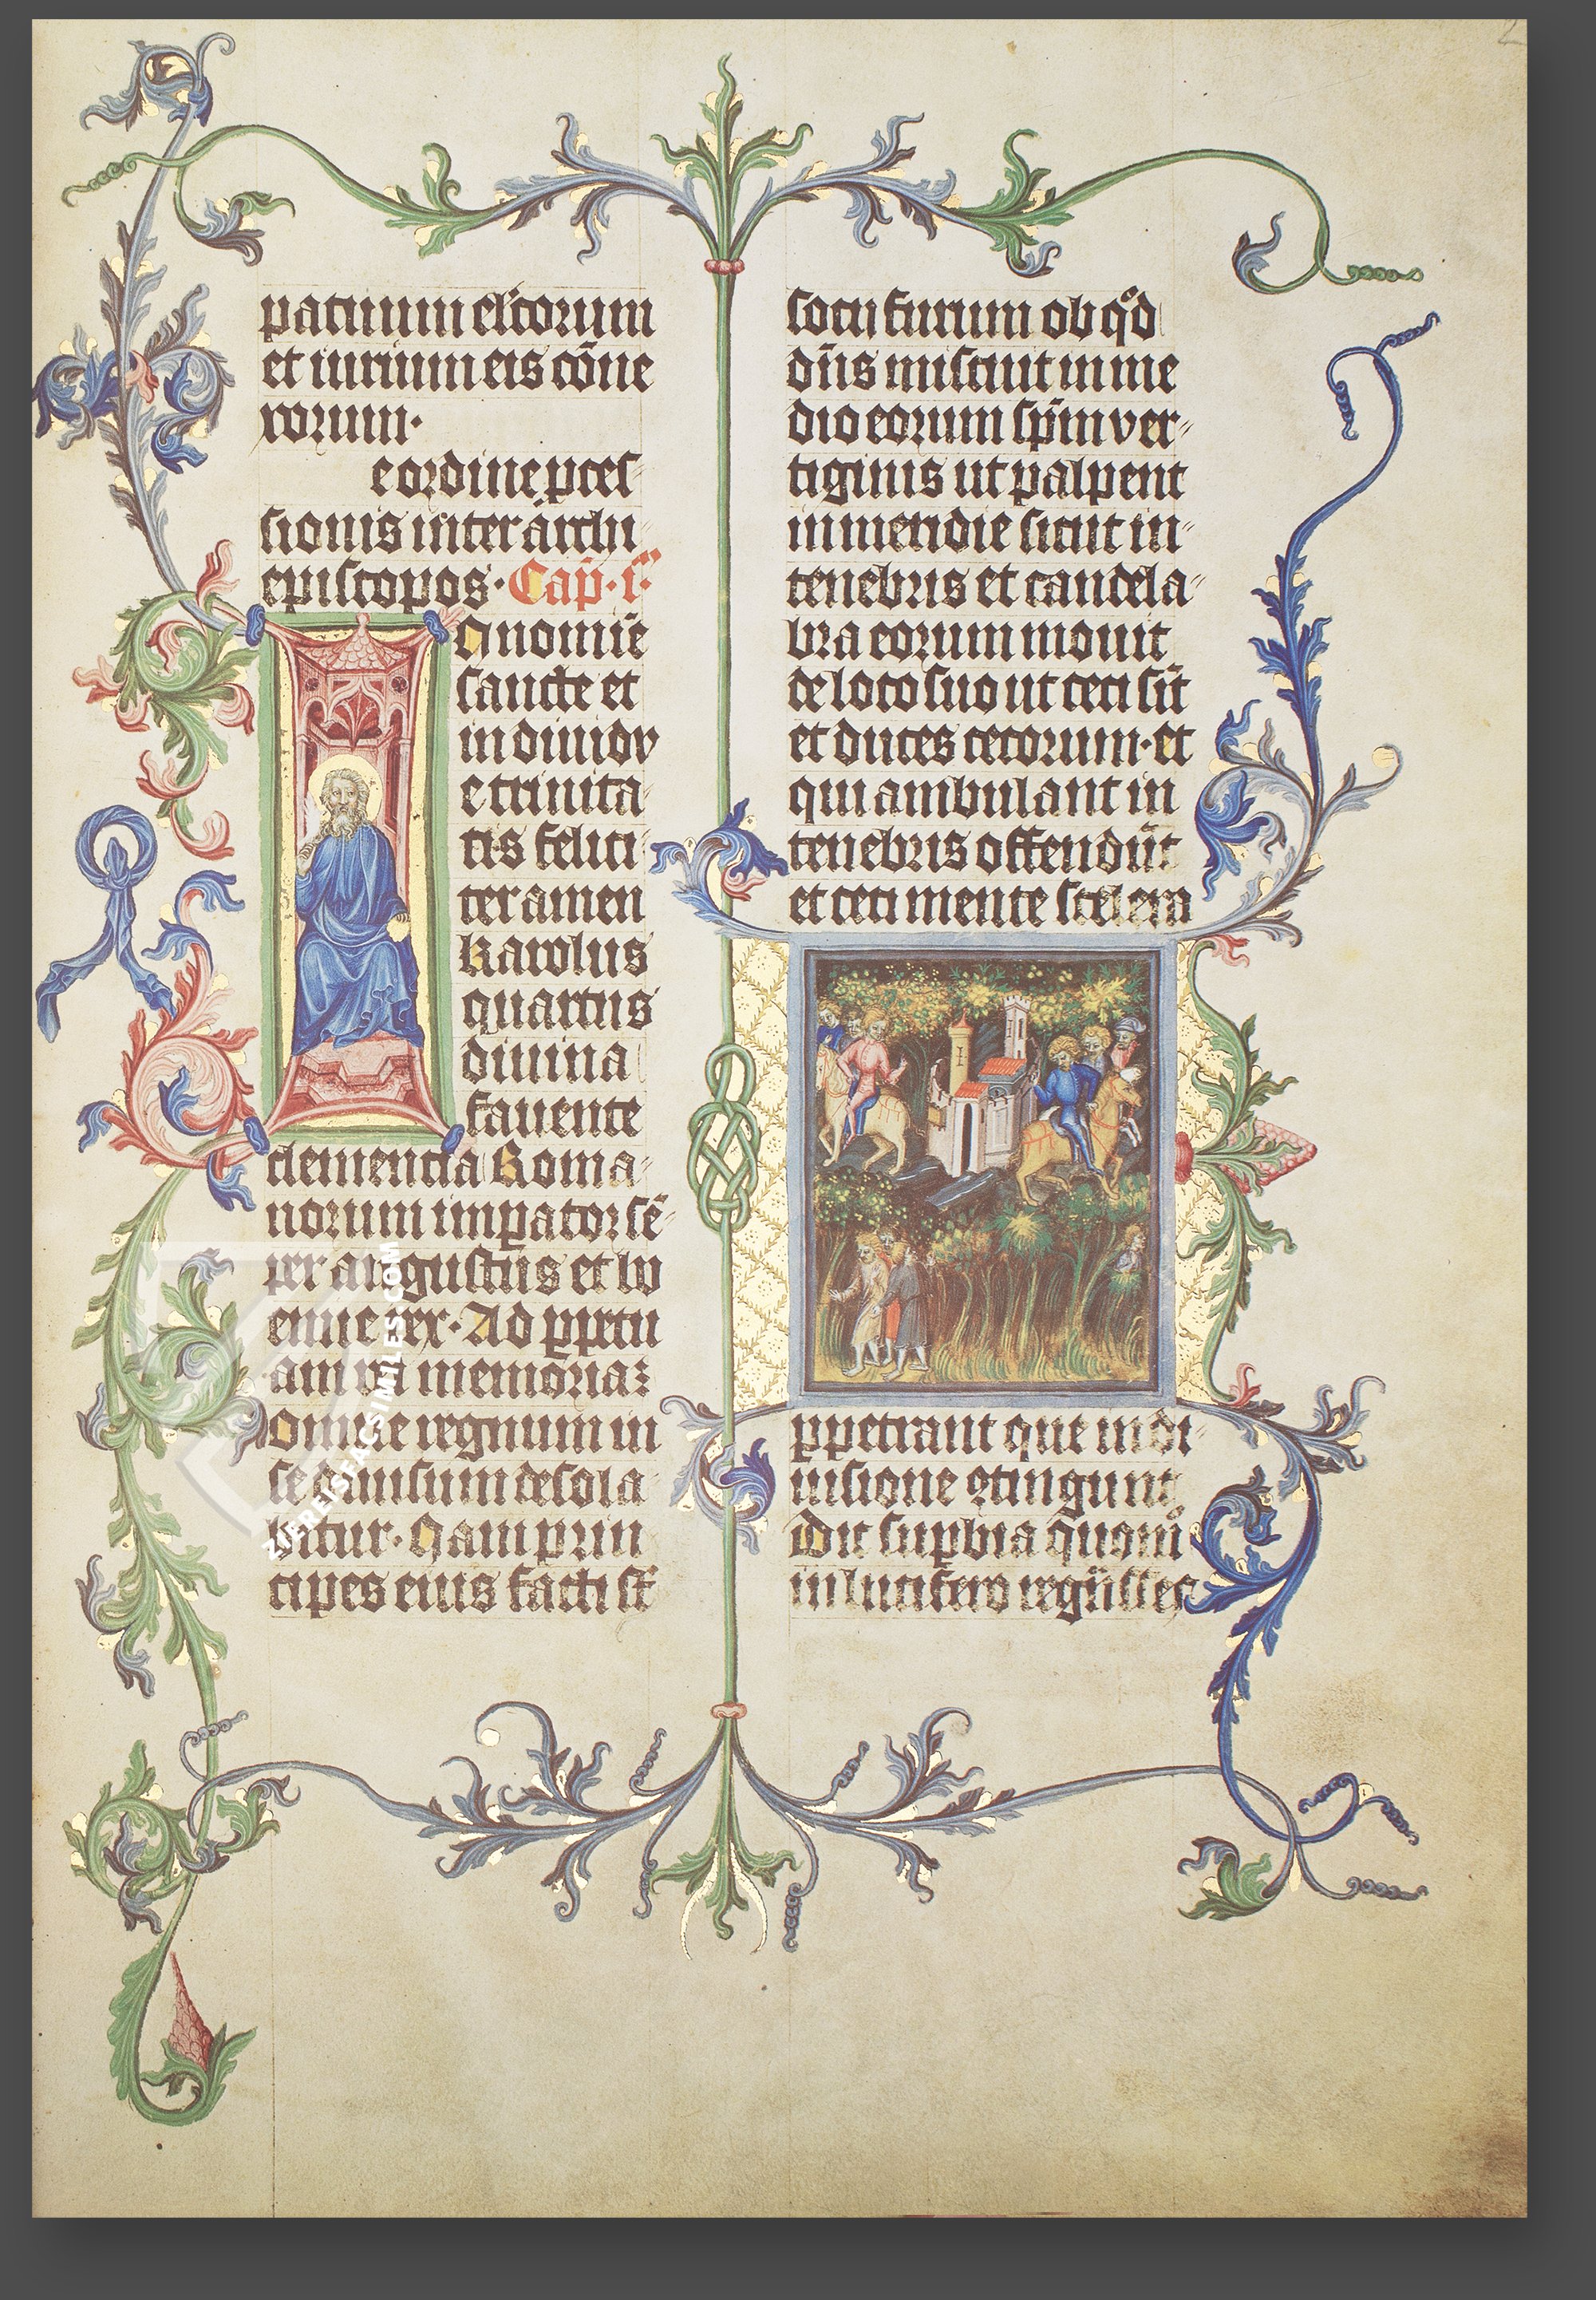 patinum elcorum
et iurium eis cōue
xorum·
e ordine p̱ces
sionis inter archi
episcopos· Cap̄· i·
N nomīe
sancte et
individv
e trinita
tis felici
ter amen
Karolus
quartus
divina
favente
clementia Roma
norum imp̱ator sē
per augustus et bo
emie rex· Ad p̱petu
am rei memoriaꝫ
Omne regnum in
se divisum desola
bitur· Nam prin
cipes eius facti sūt
socii furum ob qd̊
dn̄s miscuit in me
dio eorum sp̄m ver
tiginis ut palpent
in meridie sicut in
tenebris et candela
bra eorum movit
de loco suo ut ceci sīt
et duces cecorum· et
qui ambulant in
tenebris offendūt
et ceci mente scelera
p̱petrant que in di
visione ꝯtingunt
Dic sup̱bia quomͦ
in lucifero regn̄sses
2
ZIEREISFACSIMILES.COM